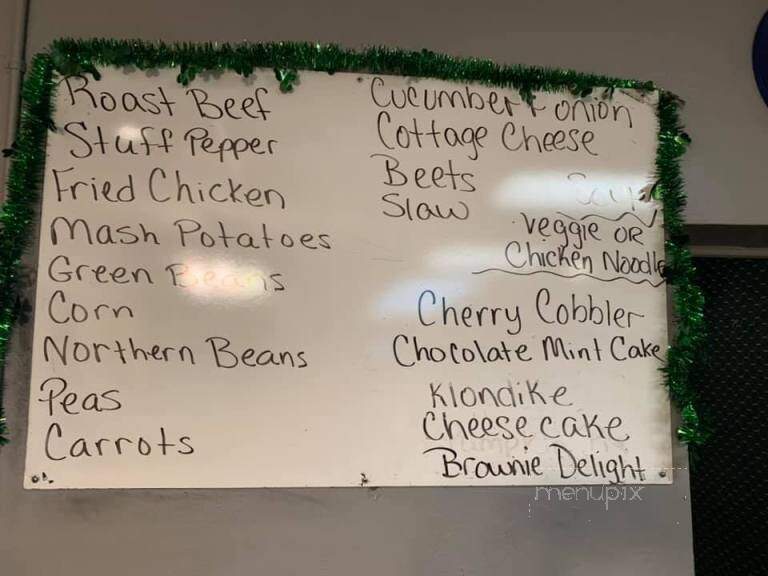 Roast Beef
Stuff Pepper
Fried Chicken
Mash Potatoes
Green Beans
Corn
Northern Beans
Peas
Carrots
Cucumber + onion
Cottage Cheese
Beets
Slaw
Soup
Veggie OR
Chicken Noodle
Cherry Cobbler
Chocolate Mint Cake
Klondike
Cheese cake
Brownie Delight
menupix